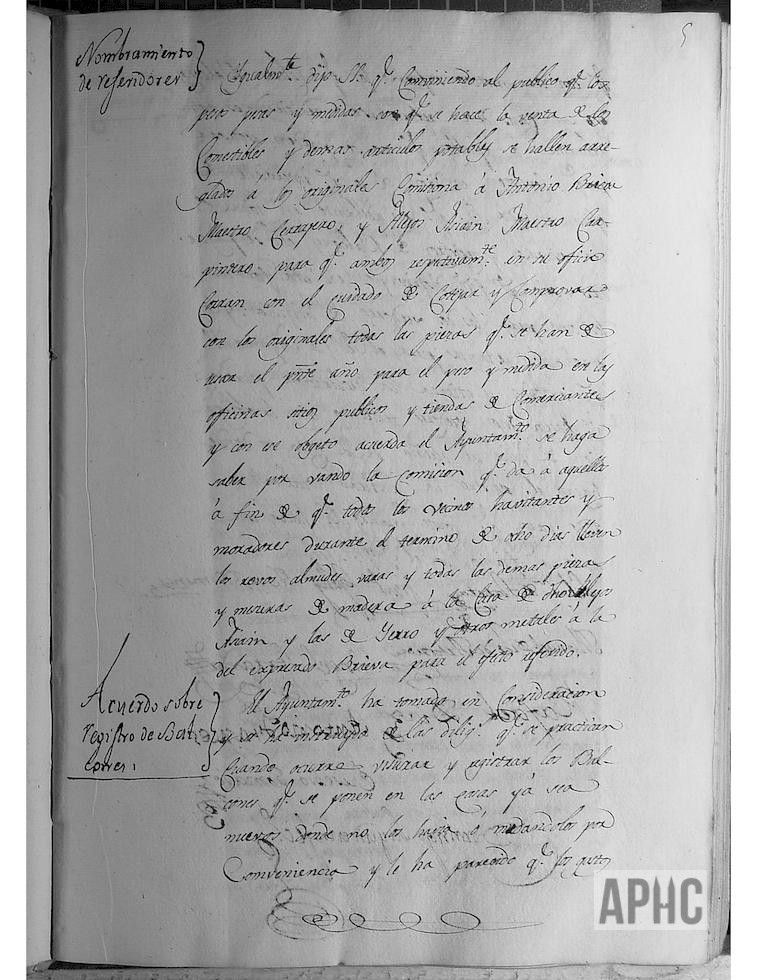 5
Nombramiento
de referidores
Igualm.te dijo S.I. q.e Combiniendo al publico q.e los
pesos pesas y medidas con q.e se hace la venta de los
Comestibles y demas articulos potables se hallen arre-
glados á los originales Comisiona á Antonio Brieva
Maestro Cerrajero, y Alejos Asiain Maestro Car-
pintero para q.e ambos respectivam.te en su oficio
Corran con el cuidado de Cotejar y Comprovar
con los originales todas las piezas q.e se han de
usar el pnte año para el peso y medida en las
oficinas sitios publicos y tiendas de Comerciantes
y con ese objeto acuerda el Ayuntam.to se haga
saber por vando la comision q.e da á aquellos
á fin de q.e todos los vecinos havitantes y
moradores durante el termino de ocho dias lleven
los rovos almudes varas y todas las demas piezas
y mesuras de madera á la Casa de dho Alejos
Asiain y las de Yerro y otros metales á la
del expresado Brieva para el efecto referido.
Acuerdo sobre
registro de Bal-
cones.
El Ayuntam.to ha tomado en Consideracion
y se ha de las dilig.s q.e se practican
Cuando ocurre visurar y registrar los Bal-
cones q.e se ponen en las casas yá sea
nuevos donde no los havia ó mudandolos por
Conveniencia y le ha parecido q.e los autos
APHC